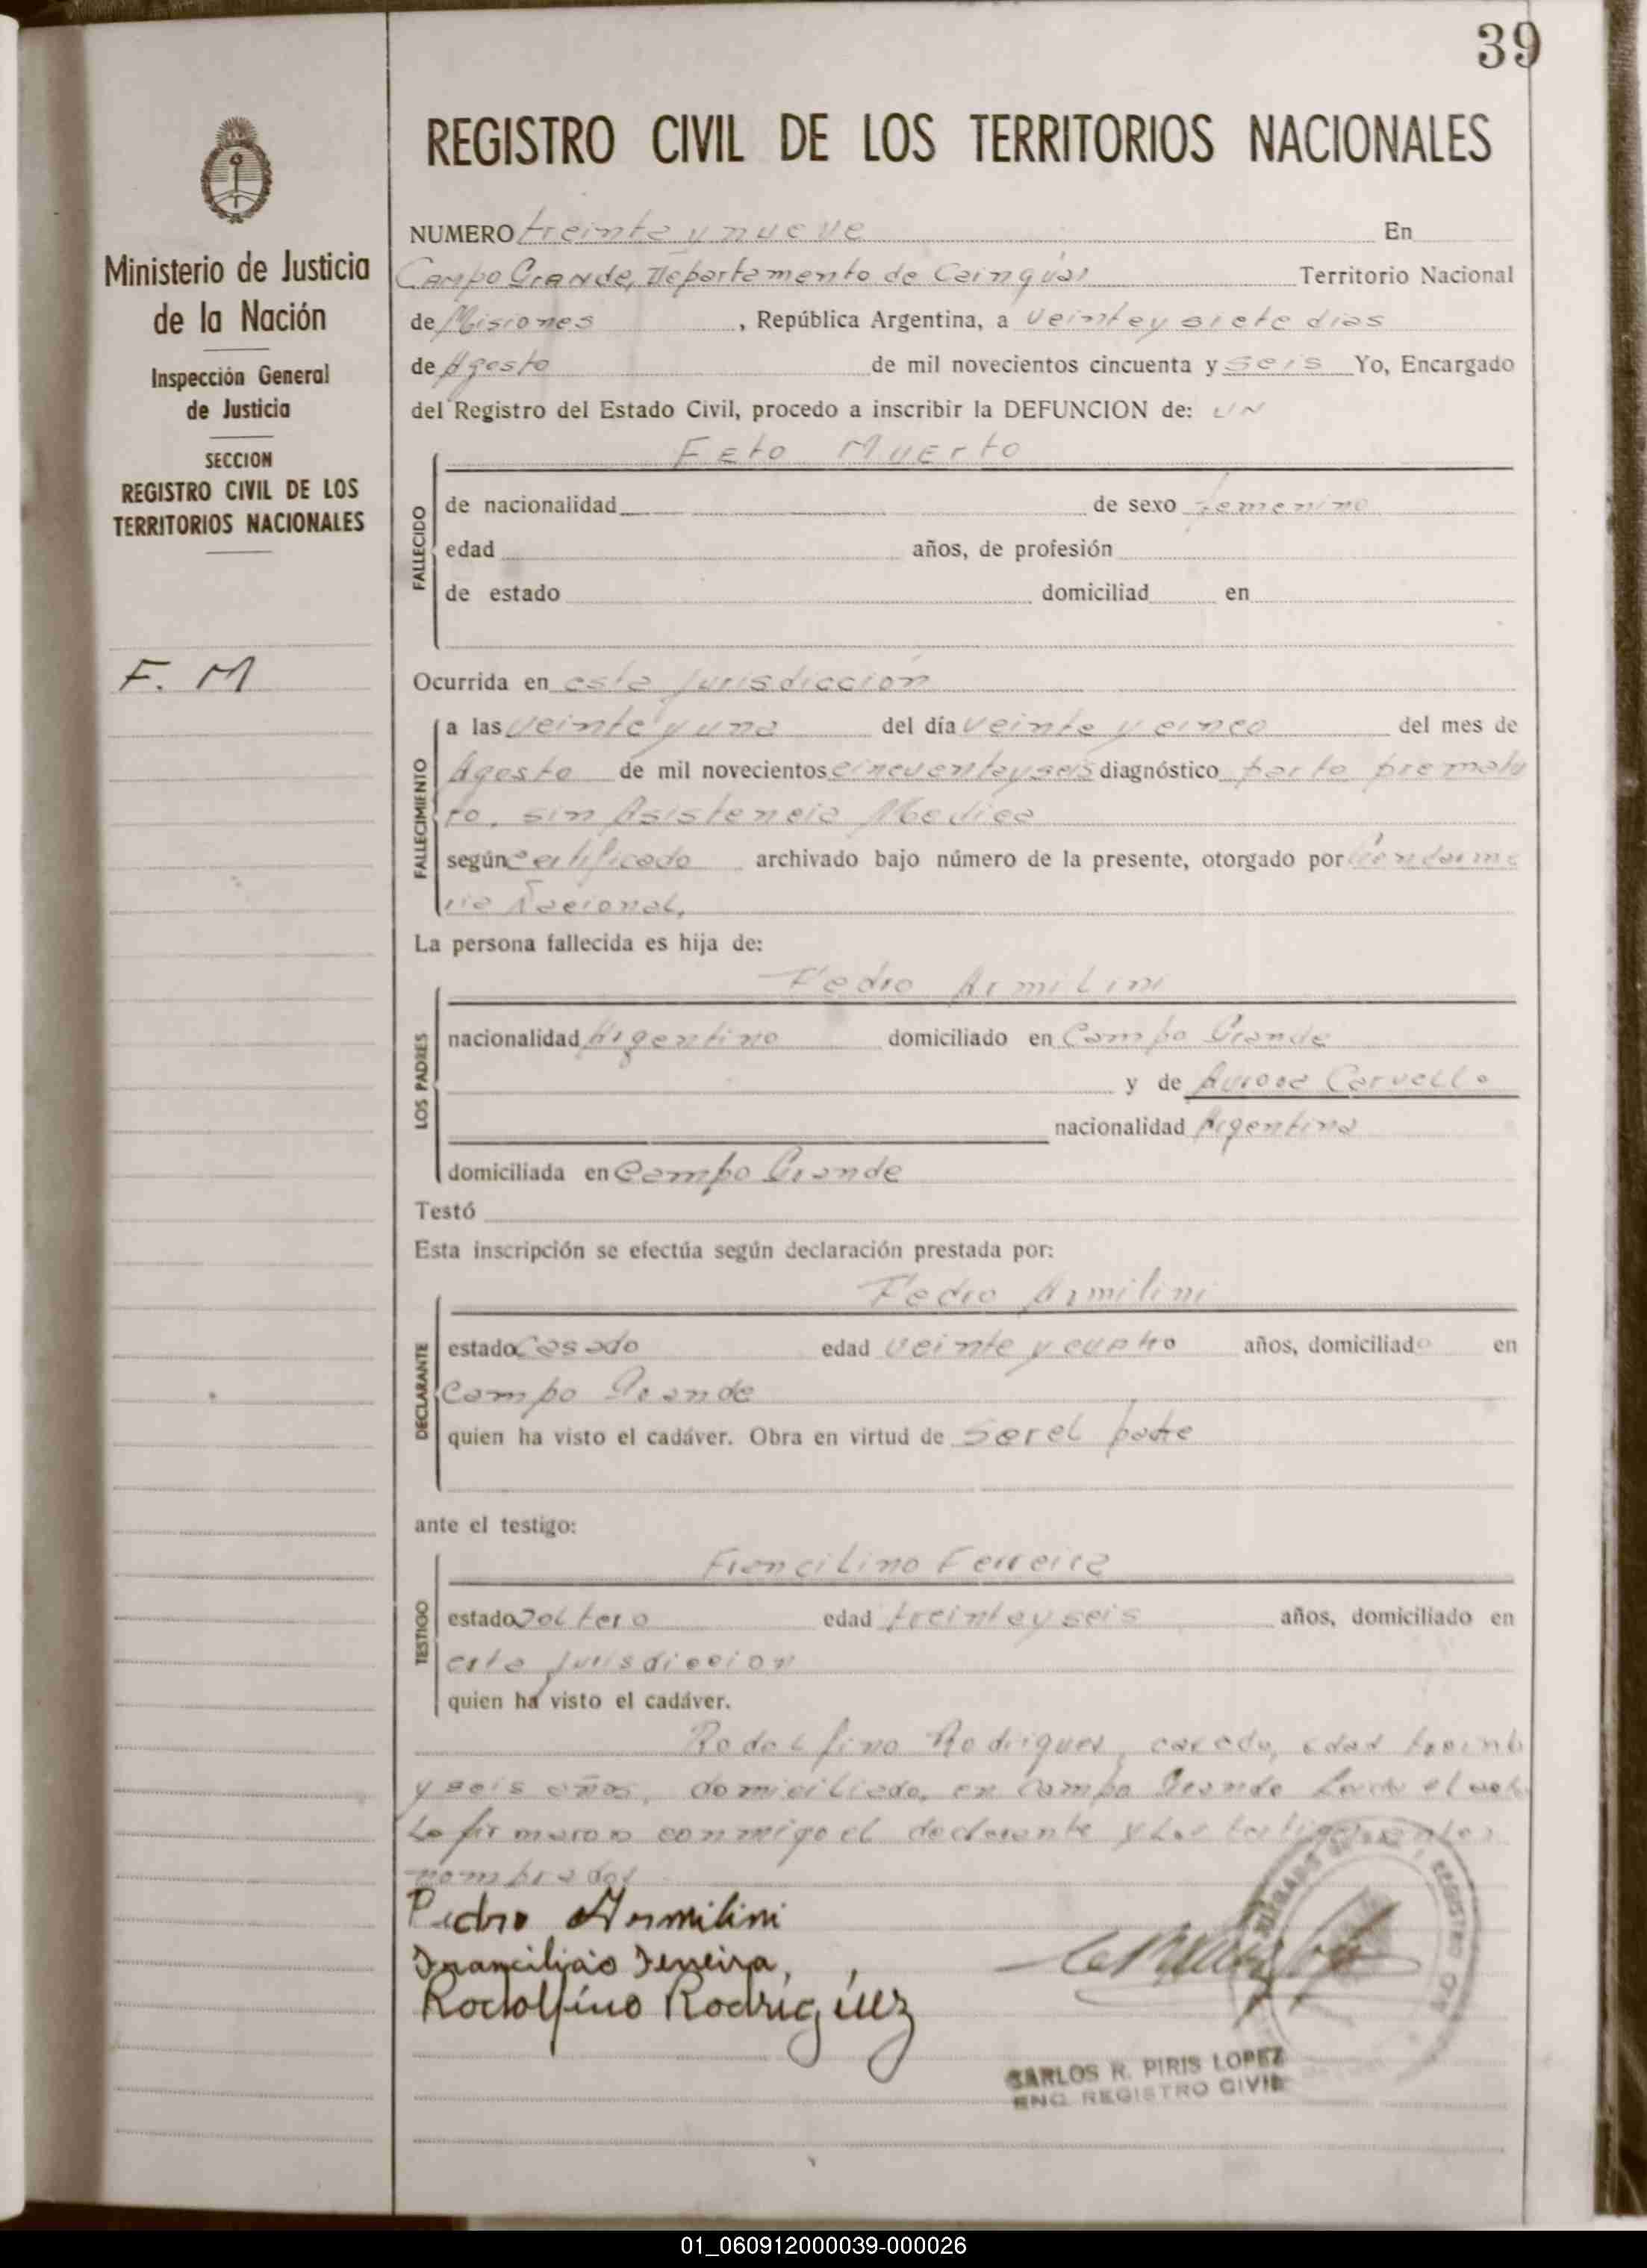 39
REGISTRO CIVIL DE LOS TERRITORIOS NACIONALES
Ministerio de Justicia
de la Nación
Inspección General
de Justicia
SECCION
REGISTRO CIVIL DE LOS
TERRITORIOS NACIONALES
F. M
NUMERO treinta y nueve En
Campo Grande, Departamento de Cainguas Territorio Nacional
de Misiones, República Argentina, a veinte y siete dias
de Agosto de mil novecientos cincuenta y seis Yo, Encargado
del Registro del Estado Civil, procedo a inscribir la DEFUNCION de: UN
FEto MUErto
FALLECIDO
de nacionalidad de sexo femenino
edad años, de profesión
de estado domiciliad en
Ocurrida en esta jurisdicción
FALLECIMIENTO
a las veinte y una del día veinte y cinco del mes de
Agosto de mil novecientos cincuenta y seis diagnóstico parto prematu
ro, sin Asistencia Medica
según certificado archivado bajo número de la presente, otorgado por Gendarme
ria Nacional,
La persona fallecida es hija de:
LOS PADRES
Pedro Armilini
nacionalidad Argentino domiciliado en Campo Grande
y de Aurora Carvallo
nacionalidad Argentina
domiciliada en Campo Grande
Testó
Esta inscripción se efectúa según declaración prestada por:
DECLARANTE
Pedro Armilini
estado Casado edad veinte y cuatro años, domiciliado en
Campo Grande
quien ha visto el cadáver. Obra en virtud de ser el padre
ante el testigo:
TESTIGO
Francilino Ferreira
estado Soltero edad treinta y seis años, domiciliado en
esta jurisdiccion
quien ha visto el cadáver.
Rodolfino Rodrigues, casado, edad treinta
y seis años, domiciliado, en Campo Grande Leida el acta
La firmaron conmigo el declarante y los testigos antes
nombrados
Pedro Armilini
Francilino Ferreira,
Rodolfino Rodriguez
REGISTRO CIVIL
CARLOS R. PIRIS LOPEZ
ENC. REGISTRO CIVIL
01_060912000039-000026